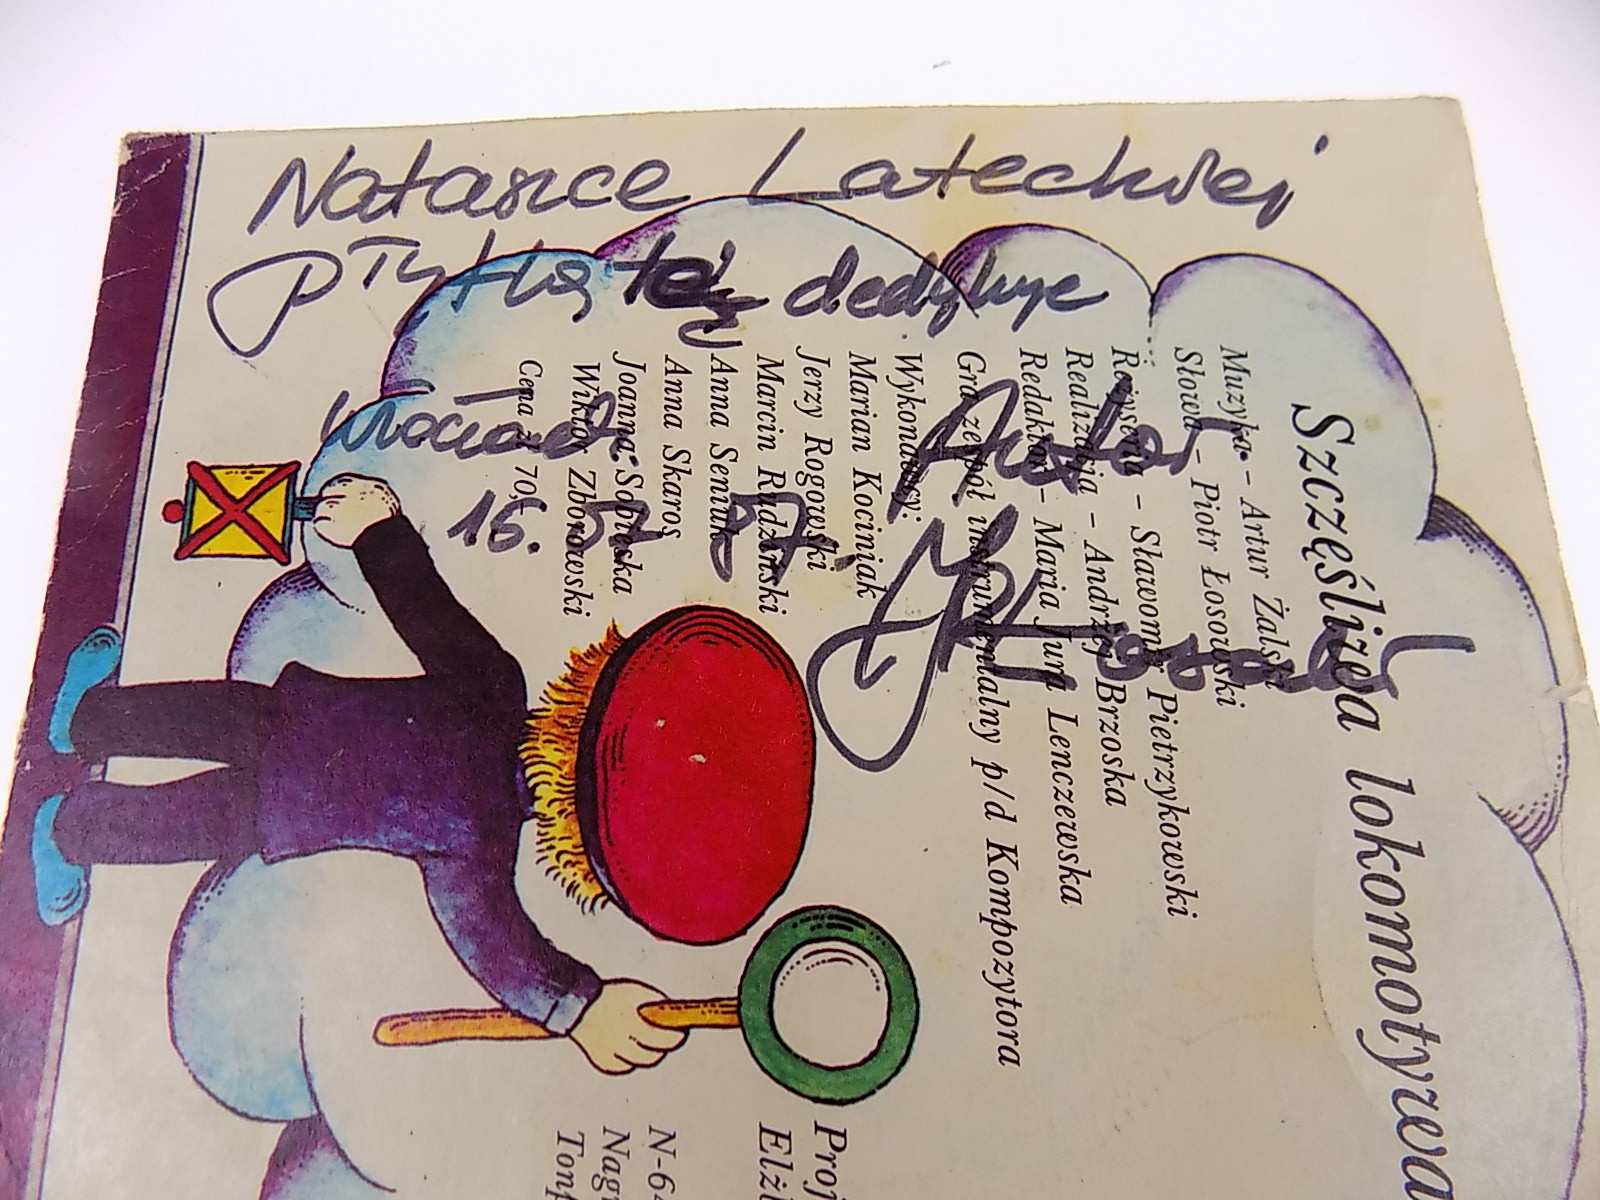 Natasice Lateckiej
Płytkę tę dedykuje
Autor
Wrocław
16.
Szczęśliwa lokomotywa
Muzyka – Artur Żalski
Słowa – Piotr Łosowski
Reżyseria – Sławomir Pietrzykowski
Realizacja – Andrzej Brzoska
Redaktor – Maria Jura Lenczewska
Gra zespół instrumentalny p/d Kompozytora
Wykonawcy:
Marian Kociniak
Jerzy Rogowski
Marcin Rudziński
Anna Seniuk
Anna Skaros
Joanna Sobieska
Wiktor Zborowski
Cena zł 70,
Proj
Elżb
N-64
Nagr
Tonp